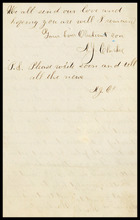 We all send our love and
hoping you are well I remain
Your
son
A J Clarke
P.S. Please write soon and tell
all the news
A J C